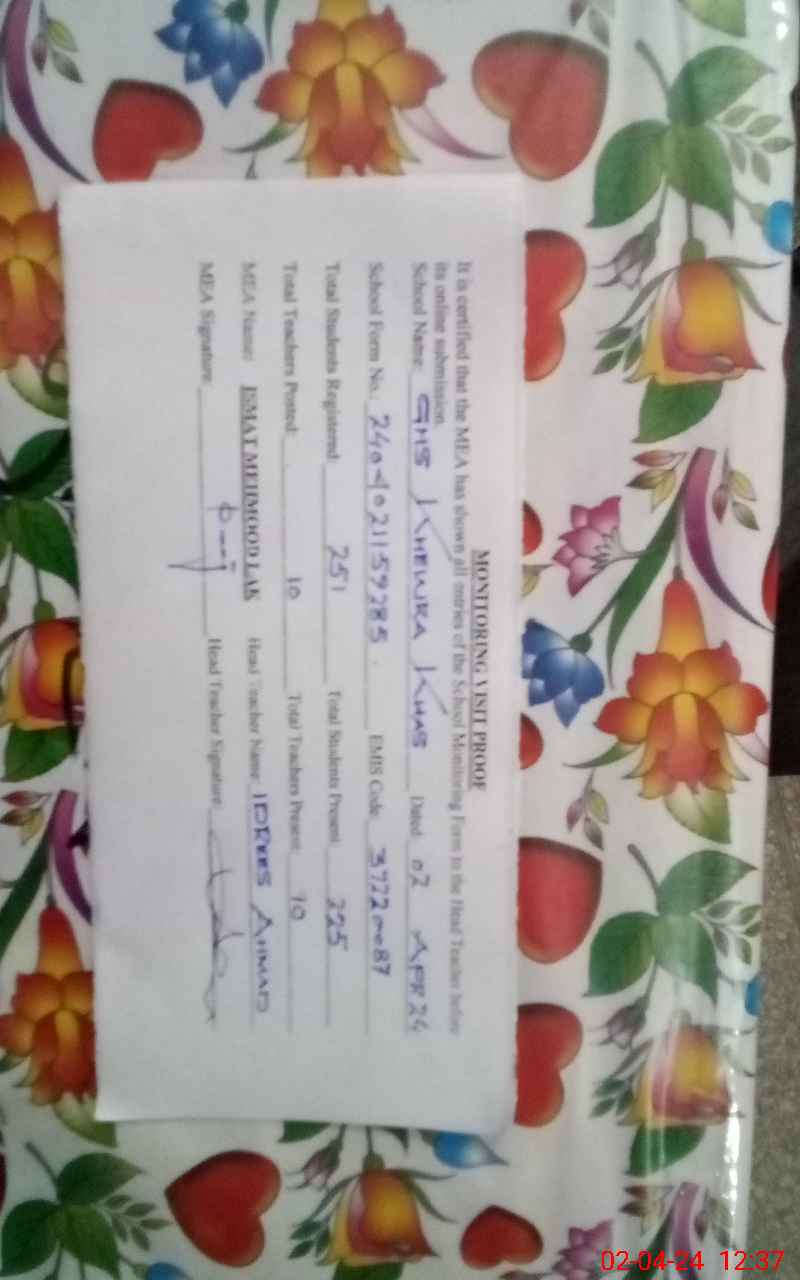 MONITORING VISIT PROOF
It is certified that the MEA has shown all entries of the School Monitoring Form to the Head Teacher before
its online submission.
School Name: GHS KHEWRA KHAS Dated: 02 APR 24
School Form No.: 2404021159285. EMIS Code: 37220087
Total Students Registered: 251 Total Students Present: 225
Total Teachers Posted: 10 Total Teachers Present: 10
MEA Name: ISMAT MEHMOOD LAK Head Teacher Name: IDREES AHMAD
MEA Signature: Head Teacher Signature:
02-04-24 12:37